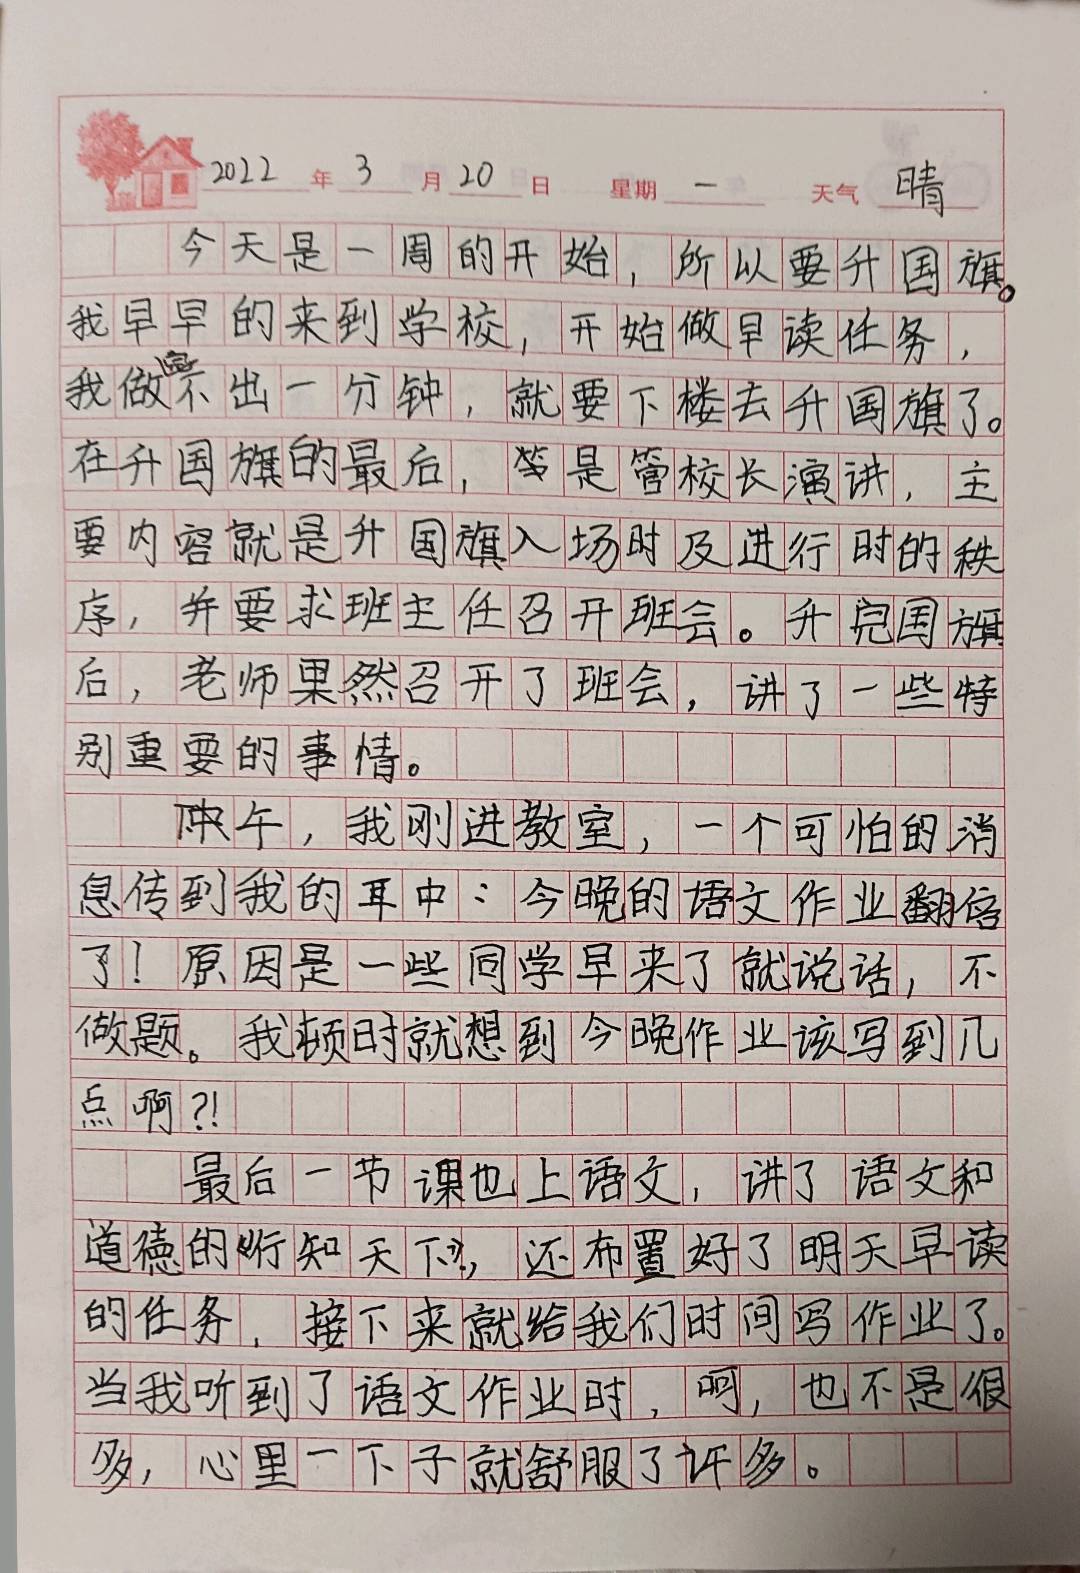 2022年3月20日 星期一 天气 晴
今天是一周的开始，所以要升国旗。
我早早的来到学校，开始做早读任务，
我做完不出一分钟，就要下楼去升国旗了。
在升国旗的最后，等是管校长演讲，主
要内容就是升国旗入场时及进行时的秩
序，并要求班主任召开班会。升完国旗
后，老师果然召开了班会，讲了一些特
别重要的事情。
中午，我刚进教室，一个可怕的消
息传到我的耳中：今晚的语文作业翻倍
了！原因是一些同学早来了就说话，不
做题。我顿时就想到今晚作业该写到几
点啊?!
最后一节课也上语文，讲了语文和
道德的《行知天下》，还布置好了明天早读
的任务，接下来就给我们时间写作业了。
当我听到了语文作业时，呵，也不是很
多，心里一下子就舒服了许多。